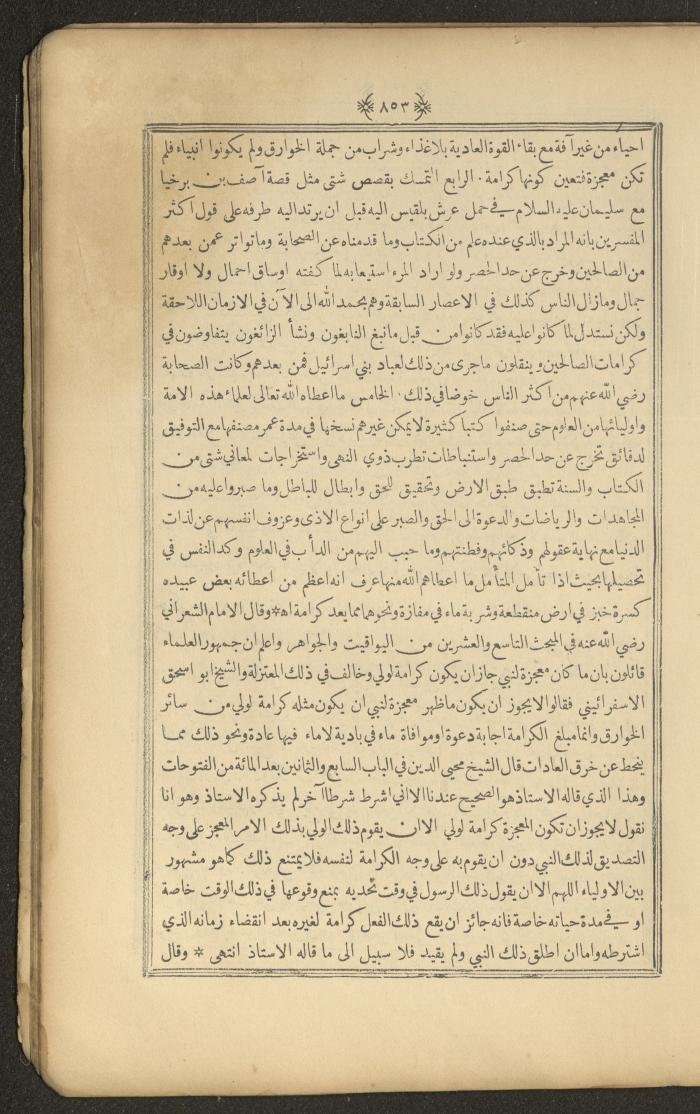 ﴿٨٥٣﴾
احياء من غير آفة مع بقاء القوة العادية بلاغذاء وشراب من جملة الخوارق ولم يكونوا انبياء فلم
تكن معجزة فتعين كونها كرامة . الرابع التمسك بقصص شتى مثل قصة آصف بن برخيا
مع سليمان عليه السلام في حمل عرش بلقيس اليه قبل ان يرتد اليه طرفه على قول اكثر
المفسرين بانه المراد بالذي عنده علم من الكتاب وما قدمناه عن الصحابة وما تواتر عمن بعدهم
من الصالحين وخرج عن حد الحصر ولو اراد المرء استيعابه لما كفته اوساق احمال ولا اوقار
جمال وما زال الناس كذلك في الاعصار السابقة وهم بحمد الله الى الآن في الازمان اللاحقة
ولكن نستدل لما كانوا عليه فقد كانوا من قبل ما نبغ النابغون ونشأ الزائغون يتفاوضون في
كرامات الصالحين وينقلون ما جرى من ذلك لعباد بني اسرائيل فمن بعدهم وكانت الصحابة
رضي الله عنهم من اكثر الناس خوضا في ذلك . الخامس ما اعطاه الله تعالى لعلماء هذه الامة
واوليائها من العلوم حتى صنفوا كتبا كثيرة لا يمكن غيرهم نسخها في مدة عمر مصنفها مع التوفيق
لدقائق تخرج عن حد الحصر واستنباطات تطرب ذوي النهى واستخراجات لمعاني شتى من
الكتاب والسنة تطبق طبق الارض وتحقيق للحق وابطال للباطل وما صبروا عليه من
المجاهدات والرياضات والدعوة الى الحق والصبر على انواع الاذى وعزوف انفسهم عن لذات
الدنيا مع نهاية عقولهم وذكائهم وفطنتهم وما حبب اليهم من الدأب في العلوم وكد النفس في
تحصيلها بحيث اذا تأمل المتأمل ما اعطاهم الله منها عرف انه اعظم من اعطائه بعض عبيده
كسرة خبز في ارض منقطعة وشربة ماء في مفازة ونحوهما مما يعد كرامة اه * وقال الامام الشعراني
رضي الله عنه في المبحث التاسع والعشرين من اليواقيت والجواهر واعلم ان جمهور العلماء
قائلون بان ما كان معجزة لنبي جاز ان يكون كرامة لولي وخالف في ذلك المعتزلة والشيخ ابو اسحق
الاسفرائيني فقالوا لا يجوز ان يكون ما ظهر معجزة لنبي ان يكون مثله كرامة لولي من سائر
الخوارق وانما مبلغ الكرامة اجابة دعوة او موافاة ماء في بادية لا ماء فيها عادة ونحو ذلك مما
ينحط عن خرق العادات قال الشيخ محيى الدين في الباب السابع والثمانين بعد المائة من الفتوحات
وهذا الذي قاله الاستاذ هو الصحيح عندنا الا اني اشرط شرطا آخر لم يذكره الاستاذ وهو انا
نقول لا يجوز ان تكون المعجزة كرامة لولي الا ان يقوم ذلك الولي بذلك الامر المعجز على وجه
التصديق لذلك النبي دون ان يقوم به على وجه الكرامة لنفسه فلا يمتنع ذلك كما هو مشهور
بين الاولياء اللهم الا ان يقول ذلك الرسول في وقت تحديه بمنع وقوعها في ذلك الوقت خاصة
او في مدة حياته خاصة فانه جائز ان يقع ذلك الفعل كرامة لغيره بعد انقضاء زمانه الذي
اشترطه واما ان اطلق ذلك النبي ولم يقيد فلا سبيل الى ما قاله الاستاذ انتهى * وقال